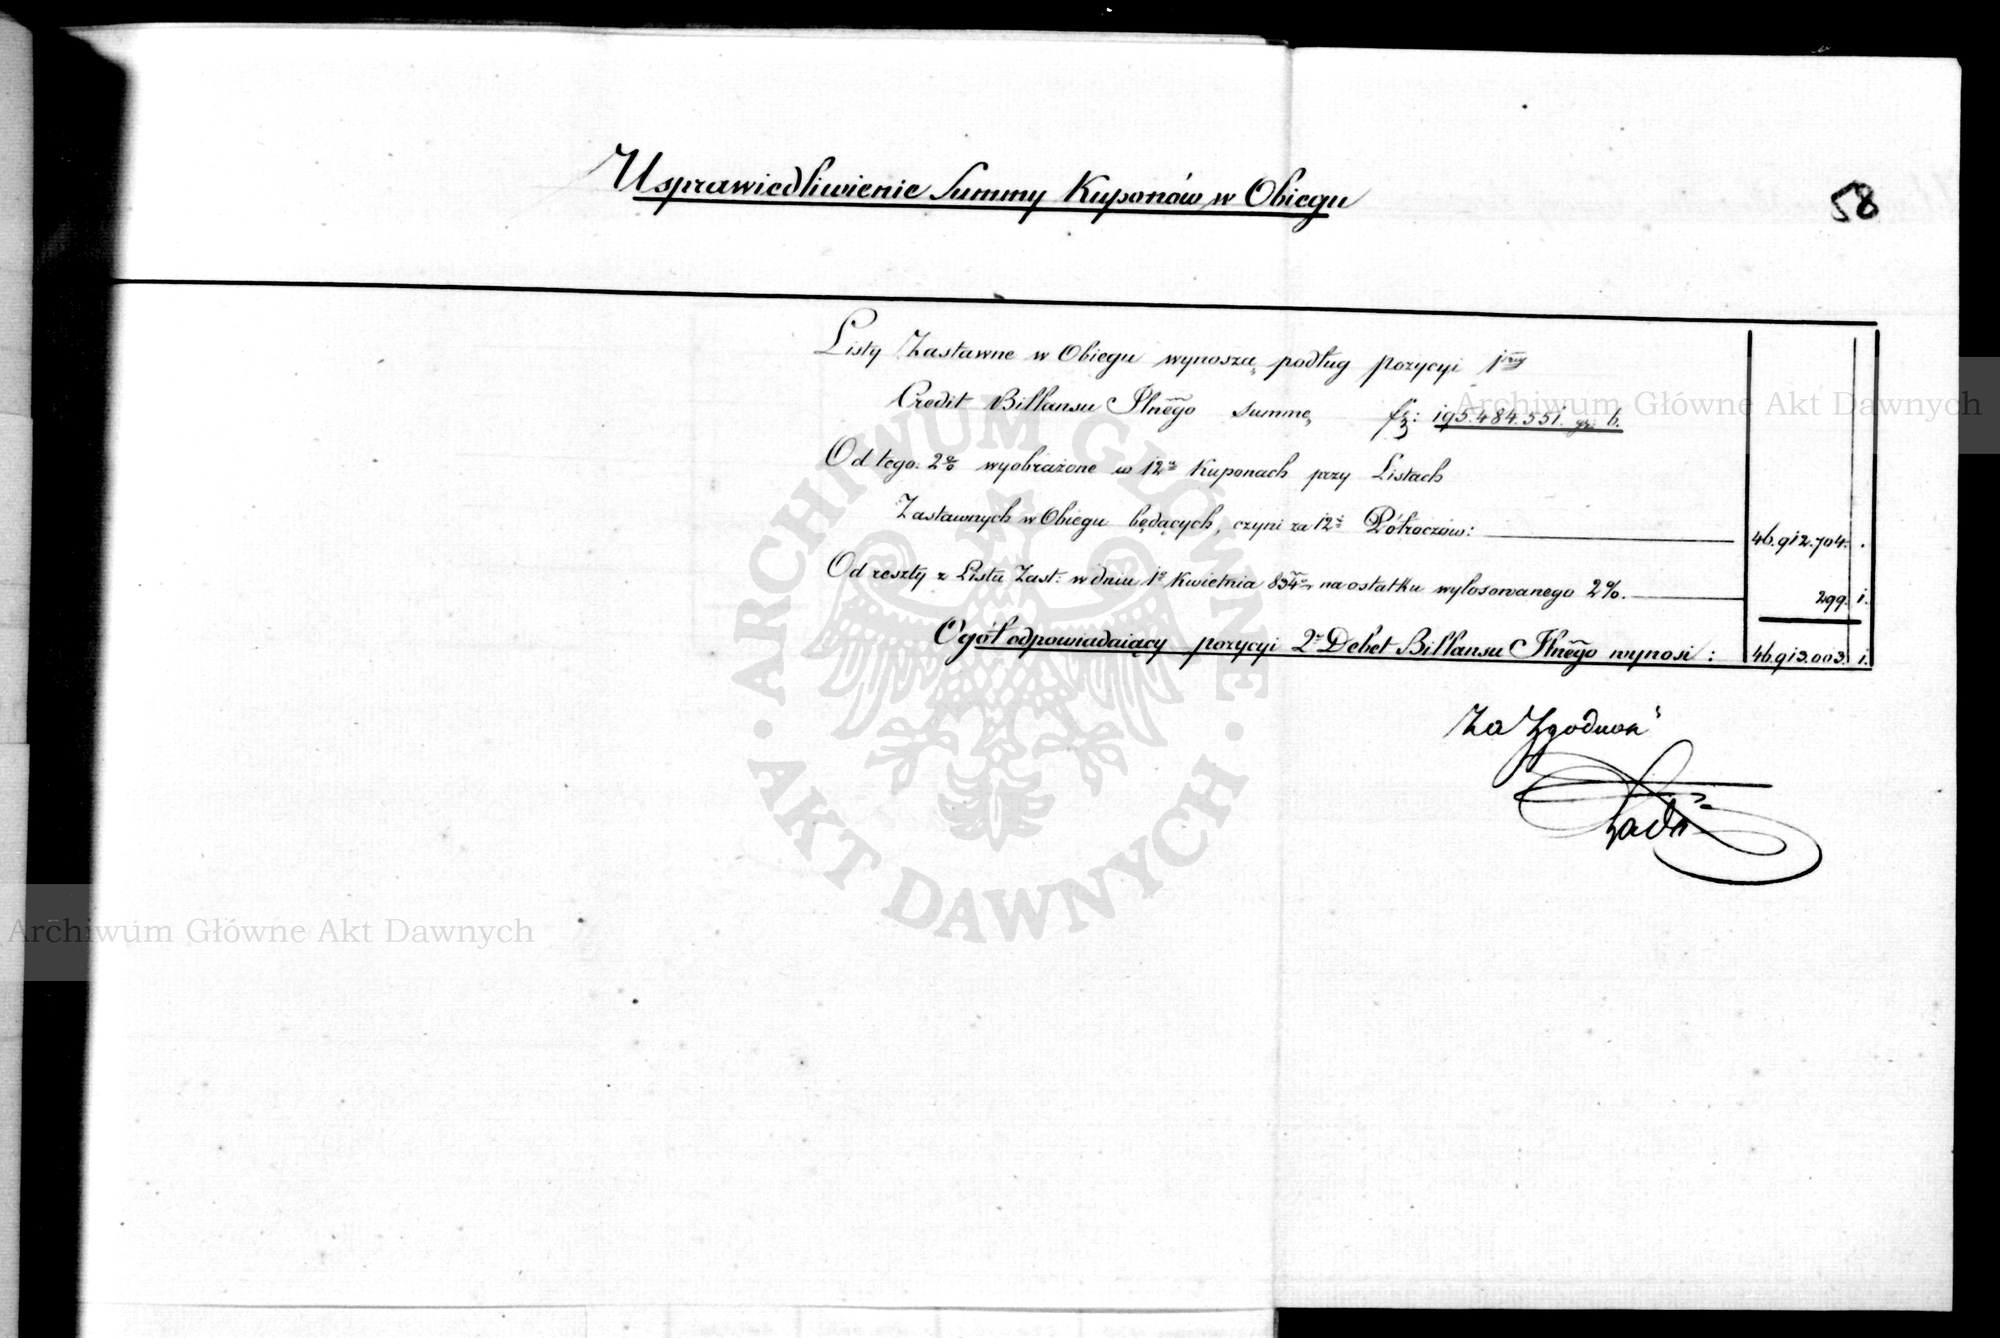 Usprawiedliwienie Summy Kuponów w Obiegu
58
Listy Zastawne w Obiegu wynoszą podług pozycyi 1rwszy
Credit Billansu Głnego summę fz: 195.484.551. gr. 6.
Od tego 2% wyobrażone w 12u Kuponach przy Listach
Zastawnych w Obiegu będących, czyni za 12ć Półroczów: 46.912.704. .
Od reszty z Listu Zast: w dniu 1o Kwietnia 834r. na ostatku wylosowanego 2%. 299. 1.
Ogół odpowiadaiący pozycyi 2r Debet Billansu Głnego wynosi: 46.913.003. 1.
Za Zgodność
Archiwum Główne Akt Dawnych
Archiwum Główne Akt Dawnych
ARCHIWUM GŁÓWNE
AKT DAWNYCH